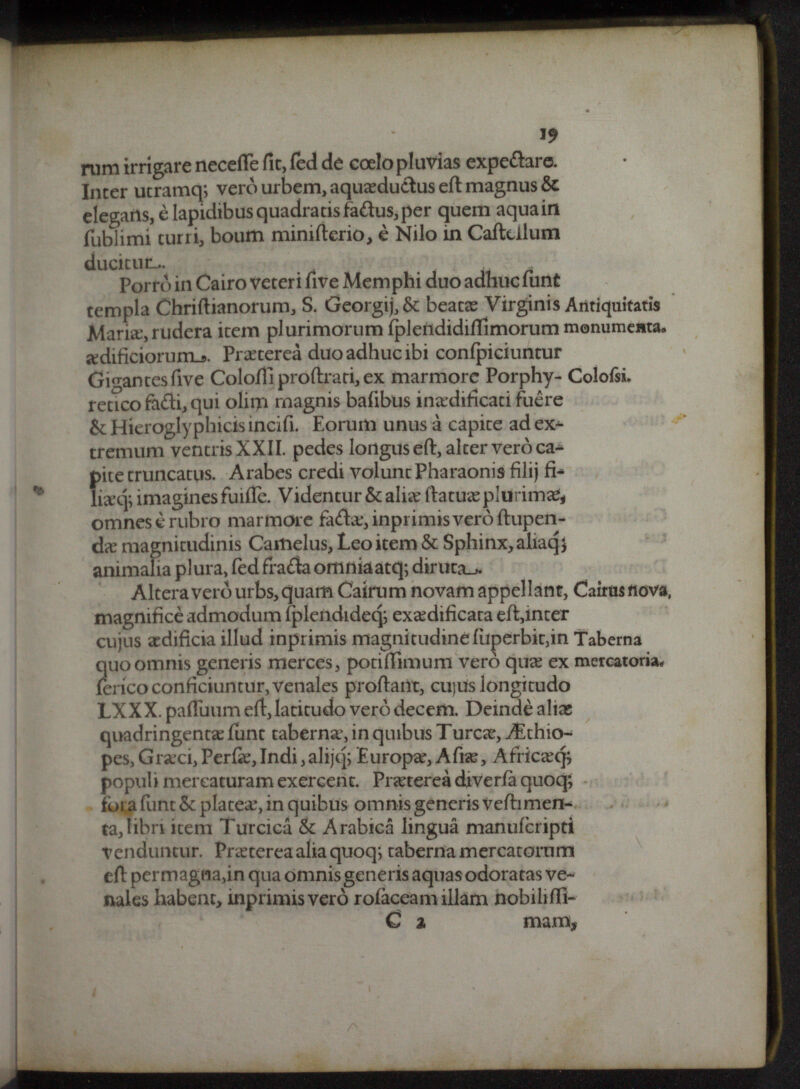 19
rum irrigare necesse sit, sed de coelo pluvias expectare.
Inter utramq; verò urbem, aquæductus est magnus &
elegans, è lapidibus quadratis factus, per quem aqua in
sublimi turri, boum ministerio, è Nilo in Castellum
ducitur.
Porrò in Cairo veteri sive Memphi duo adhuc sunt
templa Christianorum, S. Georgij, & beatæ Virginis Antiquitatis
Mariæ, rudera item plurimorum splendidissimorum monumenta.
ædificiorum. Prætereà duo adhuc ibi conspiciuntur
Gigantes sive Colossi prostrati, ex marmore Porphy- Colossi.
retico facti, qui olim magnis basibus inædificati fuêre
& Hieroglyphicis incisi. Eorum unus à capite ad ex-
tremum ventris XXII. pedes longus est, alter verò ca-
pite truncatus. Arabes credi volunt Pharaonis filij fi-
liæq; imagines fuisse. Videntur & aliæ statuæ plurimæ,
omnes è rubro marmore factæ, inprimis verò stupen-
dæ magnitudinis Camelus, Leo item & Sphinx, aliaq;
animalia plura, sed fracta omnia atq; diruta.
Altera verò urbs, quam Cairum novam appellant, Cairus nova,
magnificè admodum splendideq; exædificata est, inter
cujus ædificia illud inprimis magnitudine superbit, in Taberna
quo omnis generis merces, potissimum verò quæ ex mercatoria.
serico conficiuntur, venales prostant, cujus longitudo
LXXX. passuum est, latitudo verò decem. Deindè aliæ
quadringentæ sunt tabernæ, in quibus Turcæ, Æthio-
pes, Græci, Persæ, Indi, alijq; Europæ, Asiæ, Africæq;
populi mercaturam exercent. Prætereà diversa quoq;
fora sunt & plateæ, in quibus omnis generis vestimen-
ta, libri item Turcicâ & Arabicâ linguâ manuscripti
venduntur. Præterea alia quoq; taberna mercatorum
est permagna, in qua omnis generis aquas odoratas ve-
nales habent, inprimis verò rosaceam illam nobilissi-
C 2 mam,